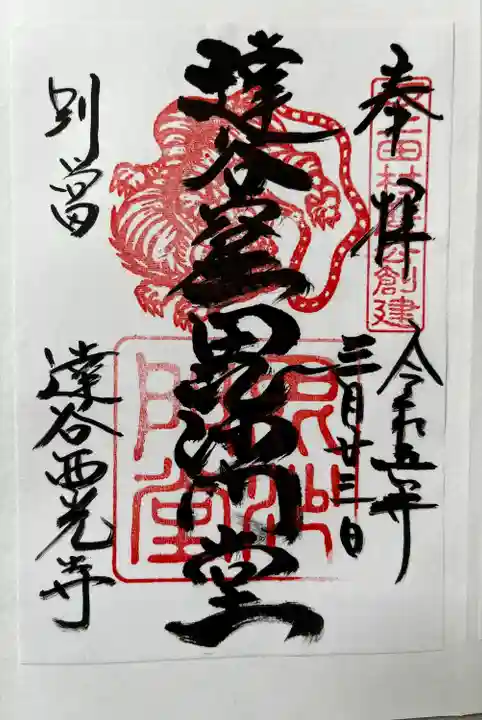 奉拝
令和五年
三月廿三日
達谷窟毘沙門堂
別當
達谷西光寺
田村麿公創建
毘沙門堂